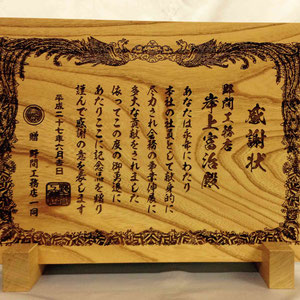 感謝状
野間工務店
岸上富治殿
あなたは永年にわたり
本社の社員として献身的に
尽力され会務の事業伸展に
多大な貢献をされました
依ってこの度の御勇退に
あたりここに記念品を贈り
謹んで感謝の意を表します
平成二十七年六月吉日
贈 野間工務店一同